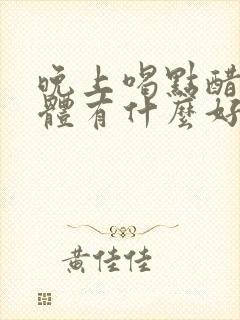 晚上喝點醋
體有什麼好
黃佳佳